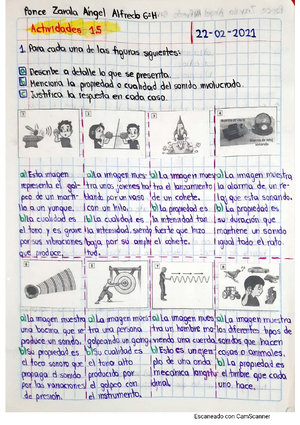 Ponce Zavala Ángel Alfredo 6°H
Actividades 15
22-02-2021
1. Para cada una de las figuras siguientes:
a) Describe a detalle lo que se presenta.
b) Menciona la propiedad o cualidad del sonido involucrado.
c) Justifica la respuesta en cada caso.
a) Esta imagen
representa el gol-
peo de un marti-
llo a un yunque.
b) La cualidad es
el tono y es grave
por sus vibraciones
que produce.
a) La imagen mues-
tra unos jovenes ha-
blando por un vaso
con un hilo.
b) La cualidad es
la intensidad siendo
baja por su amplitud
a) La imagen muestra
tra el lanzamiento
de un cohete.
b) La propiedad es
la intensidad tan
fuerte que hizo
el cohete.
a) La imagen muestra
la alarma de un re-
loj que esta sonando.
b) La propiedad es
su duración que
mantiene un sonido
igual todo el rato.
a) La imagen muestra
una bocina que se
produce un sonido.
b) Su propiedad es
el toca sonoro que
propaga el sonido
por las variaciones
de presión.
a) La imagen mues-
tra una persona
golpeando un gong.
b) Su cualidad es
el tono alto
producido por
el golpeo con
el instrumento.
a) La imagen mues-
tra un hombre mo-
viendo una cuerda.
b) Esto es un ejem-
plo de una onda
mecánica longitu-
dinal.
a) La imagen muestra
los diferentes tipos de
sonidos que hacen
cosas o animales.
b) La propiedad es
el timbre que cada
uno hace.
Escaneado con CamScanner